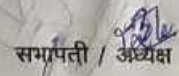 सभापती / अध्यक्ष